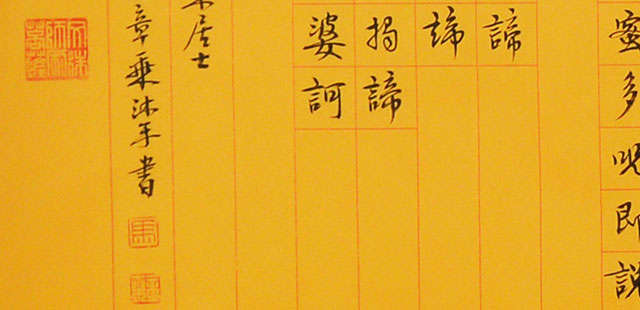 蜜多呪即説
諦
諦
揭諦
婆訶
居士
章乘沐手書
馬